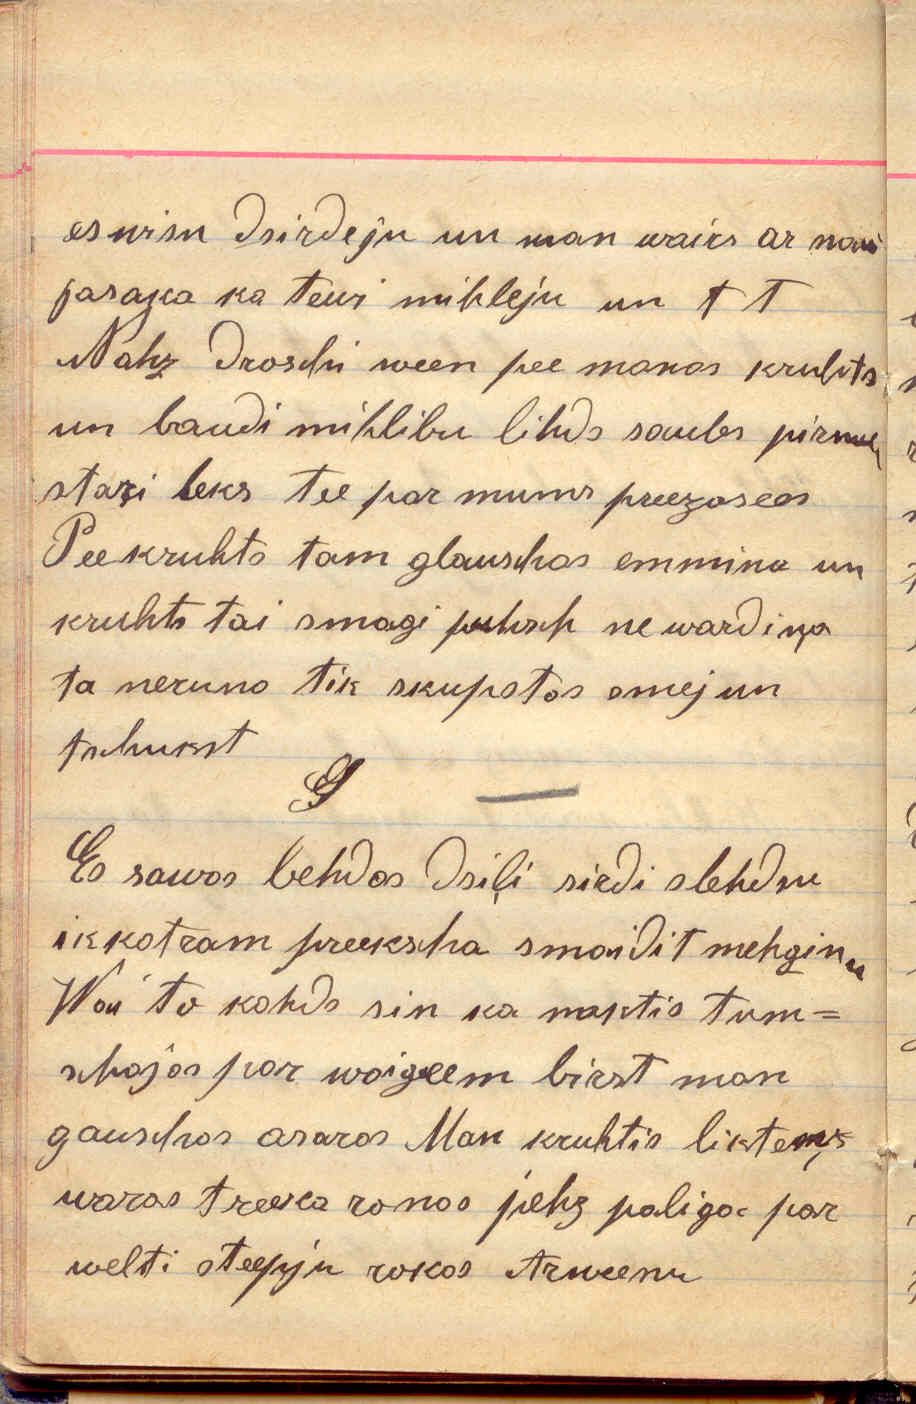 es wisu dsirdeju un man wairs ar naw
jasaka ka tewi mihleju un t t
Nahz droschi ween pee manas kruhts
un baudi mihlibu lihds saules pirmee
stari leks tee par mums preezasees
Pee kruhts tam glauschas emmina un
kruhts tai smagi puhsch ne wardiņa
ta neruna tik skupstas smej un
tschukst
G —
Es sawas behdas dsiļi sirdi slehdsu
ikkatram preekscha smaidit mehginu
Wai to kahds sin ka naktis tum=
schajas par waigeem birst man
gauschas asaras Man kruhtis liktenņs
waras treeka ronas pehz paliga par
welti steepju rokas Arweenu